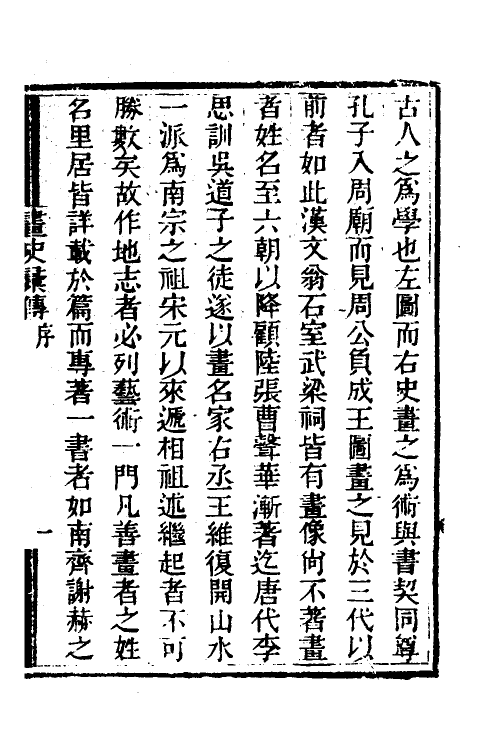 古人之爲學也左圖而右史畫之爲術與書契同尊
孔子入周廟而見周公負成王圖畫之見於三代以
前者如此漢文翁石室武梁祠皆有畫像尙不著畫
者姓名至六朝以降顧陸張曹聲華漸著迄唐代李
思訓吳道子之徒遂以畫名家右丞王維復開山水
一派爲南宗之祖宋元以來遞相祖述繼起者不可
勝數矣故作地志者必列藝術一門凡善畫者之姓
名里居皆詳載於篇而專著一書者如南齊謝赫之
畫史彙傳 序 一